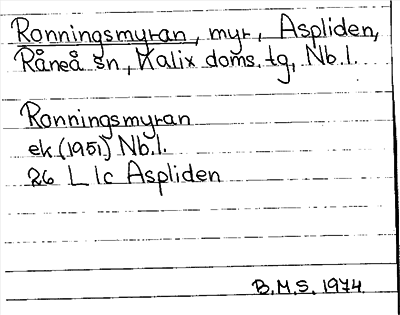 Ronningsmyran, myr, Aspliden,
Råneå sn, Kalix doms. tg, Nb.l.
Ronningsmyran
ek (1951) Nb.l.
26 L 1c Aspliden
B.M.S. 1974